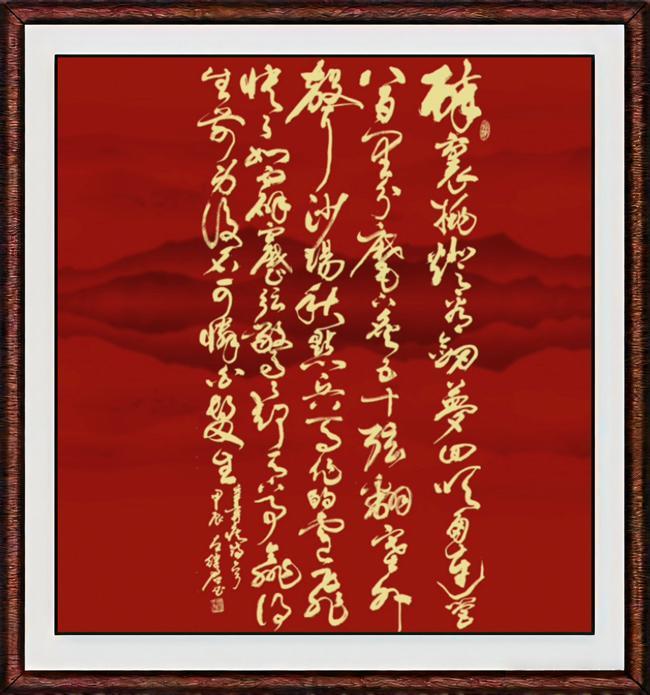 醉裏挑燈看劍夢回吹角連營
八百里分麾下炙五十弦翻塞外
聲沙場秋點兵馬作的盧飛
快弓如霹靂弦驚了却天下事贏得
生前身後名可憐白髮生
甲辰